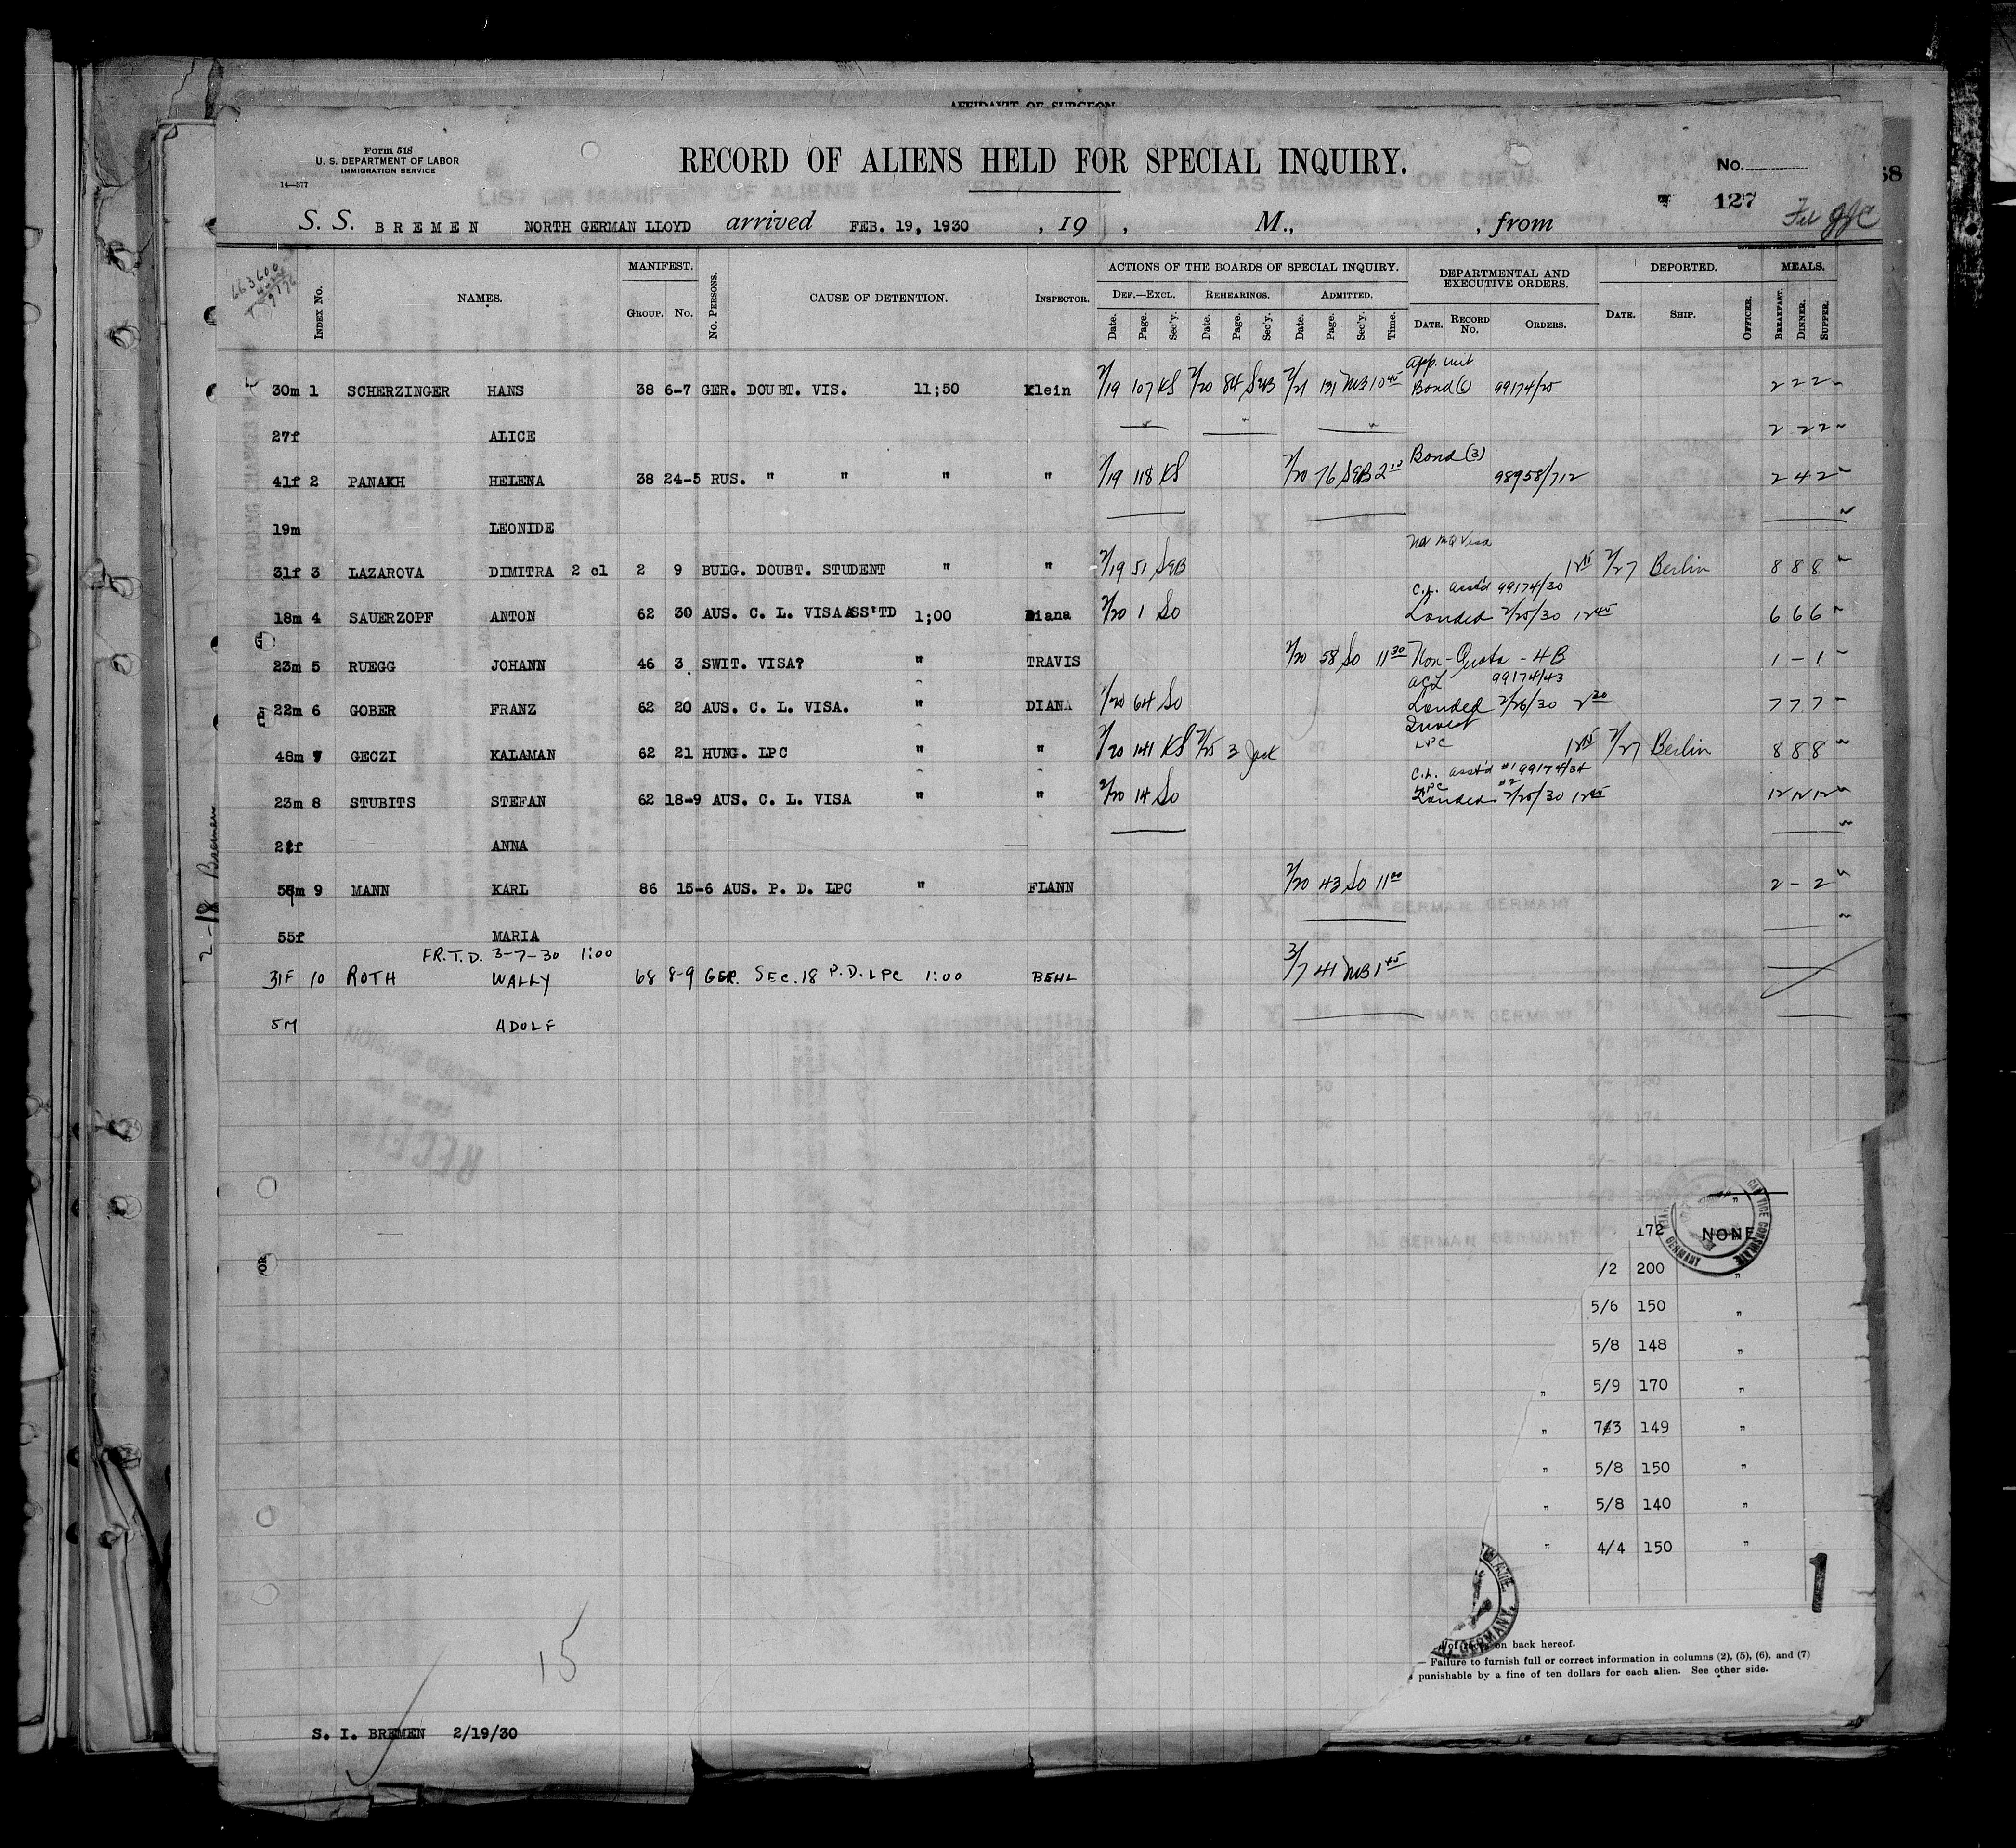 AFFIDAVIT OF SURGEON
Form 518
U. S. DEPARTMENT OF LABOR
IMMIGRATION SERVICE
14—377
RECORD OF ALIENS HELD FOR SPECIAL INQUIRY.
No.
127
S. S. BREMEN NORTH GERMAN LLOYD arrived FEB. 19, 1930 , 19 , M., , from
INDEX No. NAMES. MANIFEST. GROUP. No. No. PERSONS. CAUSE OF DETENTION. INSPECTOR. ACTIONS OF THE BOARDS OF SPECIAL INQUIRY. DEPARTMENTAL AND EXECUTIVE ORDERS. DEPORTED. MEALS.
DEF.—EXCL. REHEARINGS. ADMITTED.
Date. Page. Sec'y. Date. Page. Sec'y. Date. Page. Sec'y. Time. DATE. RECORD No. ORDERS. DATE. SHIP. OFFICER. BREAKFAST. DINNER. SUPPER.
App. unit
30m 1 SCHERZINGER HANS 38 6-7 GER. DOUBT. VIS. 11;50 Klein 2/19 107 KS 2/20 84 SWB 2/21 131 MB 10 45 Bond 99174/25 2 2 2
27f ALICE 2 2 2
Bond (3)
41f 2 PANAKH HELENA 38 24-5 RUS. " " " " 2/19 118 KS 2/20 76 SWB 2 10 98958/712 2 4 2
19m LEONIDE
31f 3 LAZAROVA DIMITRA 2 cl 2 9 BULG. DOUBT. STUDENT " " 2/19 51 SWB 12 15 2/27 Berlin 8 8 8
C.L. asst'd 99174/30
18m 4 SAUERZOPF ANTON 62 30 AUS. C. L. VISA ASS'TD 1;00 Diana 2/20 1 So Landed 2/25/30 12 45 6 6 6
23m 5 RUEGG JOHANN 46 3 SWIT. VISA? " TRAVIS 2/20 58 So 11 30 Non-Quota - 4B 1 - 1
99174/43
22m 6 GOBER FRANZ 62 20 AUS. C. L. VISA. " DIANA 2/20 64 So Landed 2/26/30 2 30 7 7 7
LPC
48m 7 GECZI KALAMAN 62 21 HUNG. LPC " " 2/20 141 KS 2/25 3 Jack 12 15 2/27 Berlin 8 8 8
C.L. asst'd #1 99174/34
LPC #2
23m 8 STUBITS STEFAN 62 18-9 AUS. C. L. VISA " " 2/20 14 So Landed 2/25/30 12 45 12 12 12
22f ANNA
55m 9 MANN KARL 86 15-6 AUS. P. D. LPC " FLANN 2/20 43 So 11 00 2 - 2
55f MARIA
FR.T.D. 3-7-30 1:00
31F 10 ROTH WALLY 68 8-9 GER. SEC. 18 P.D. LPC 1:00 BEHL 3/7 41 MB 1 45
5M ADOLF
2-18 Bremen
172 NONE
/2 200 "
5/6 150 "
5/8 148 "
" 5/9 170 "
" 7/3 149 "
" 5/8 150 "
" 5/8 140 "
" 4/4 150 "
1
on back hereof.
— Failure to furnish full or correct information in columns (2), (5), (6), and (7)
punishable by a fine of ten dollars for each alien. See other side.
15
S. I. BREMEN 2/19/30